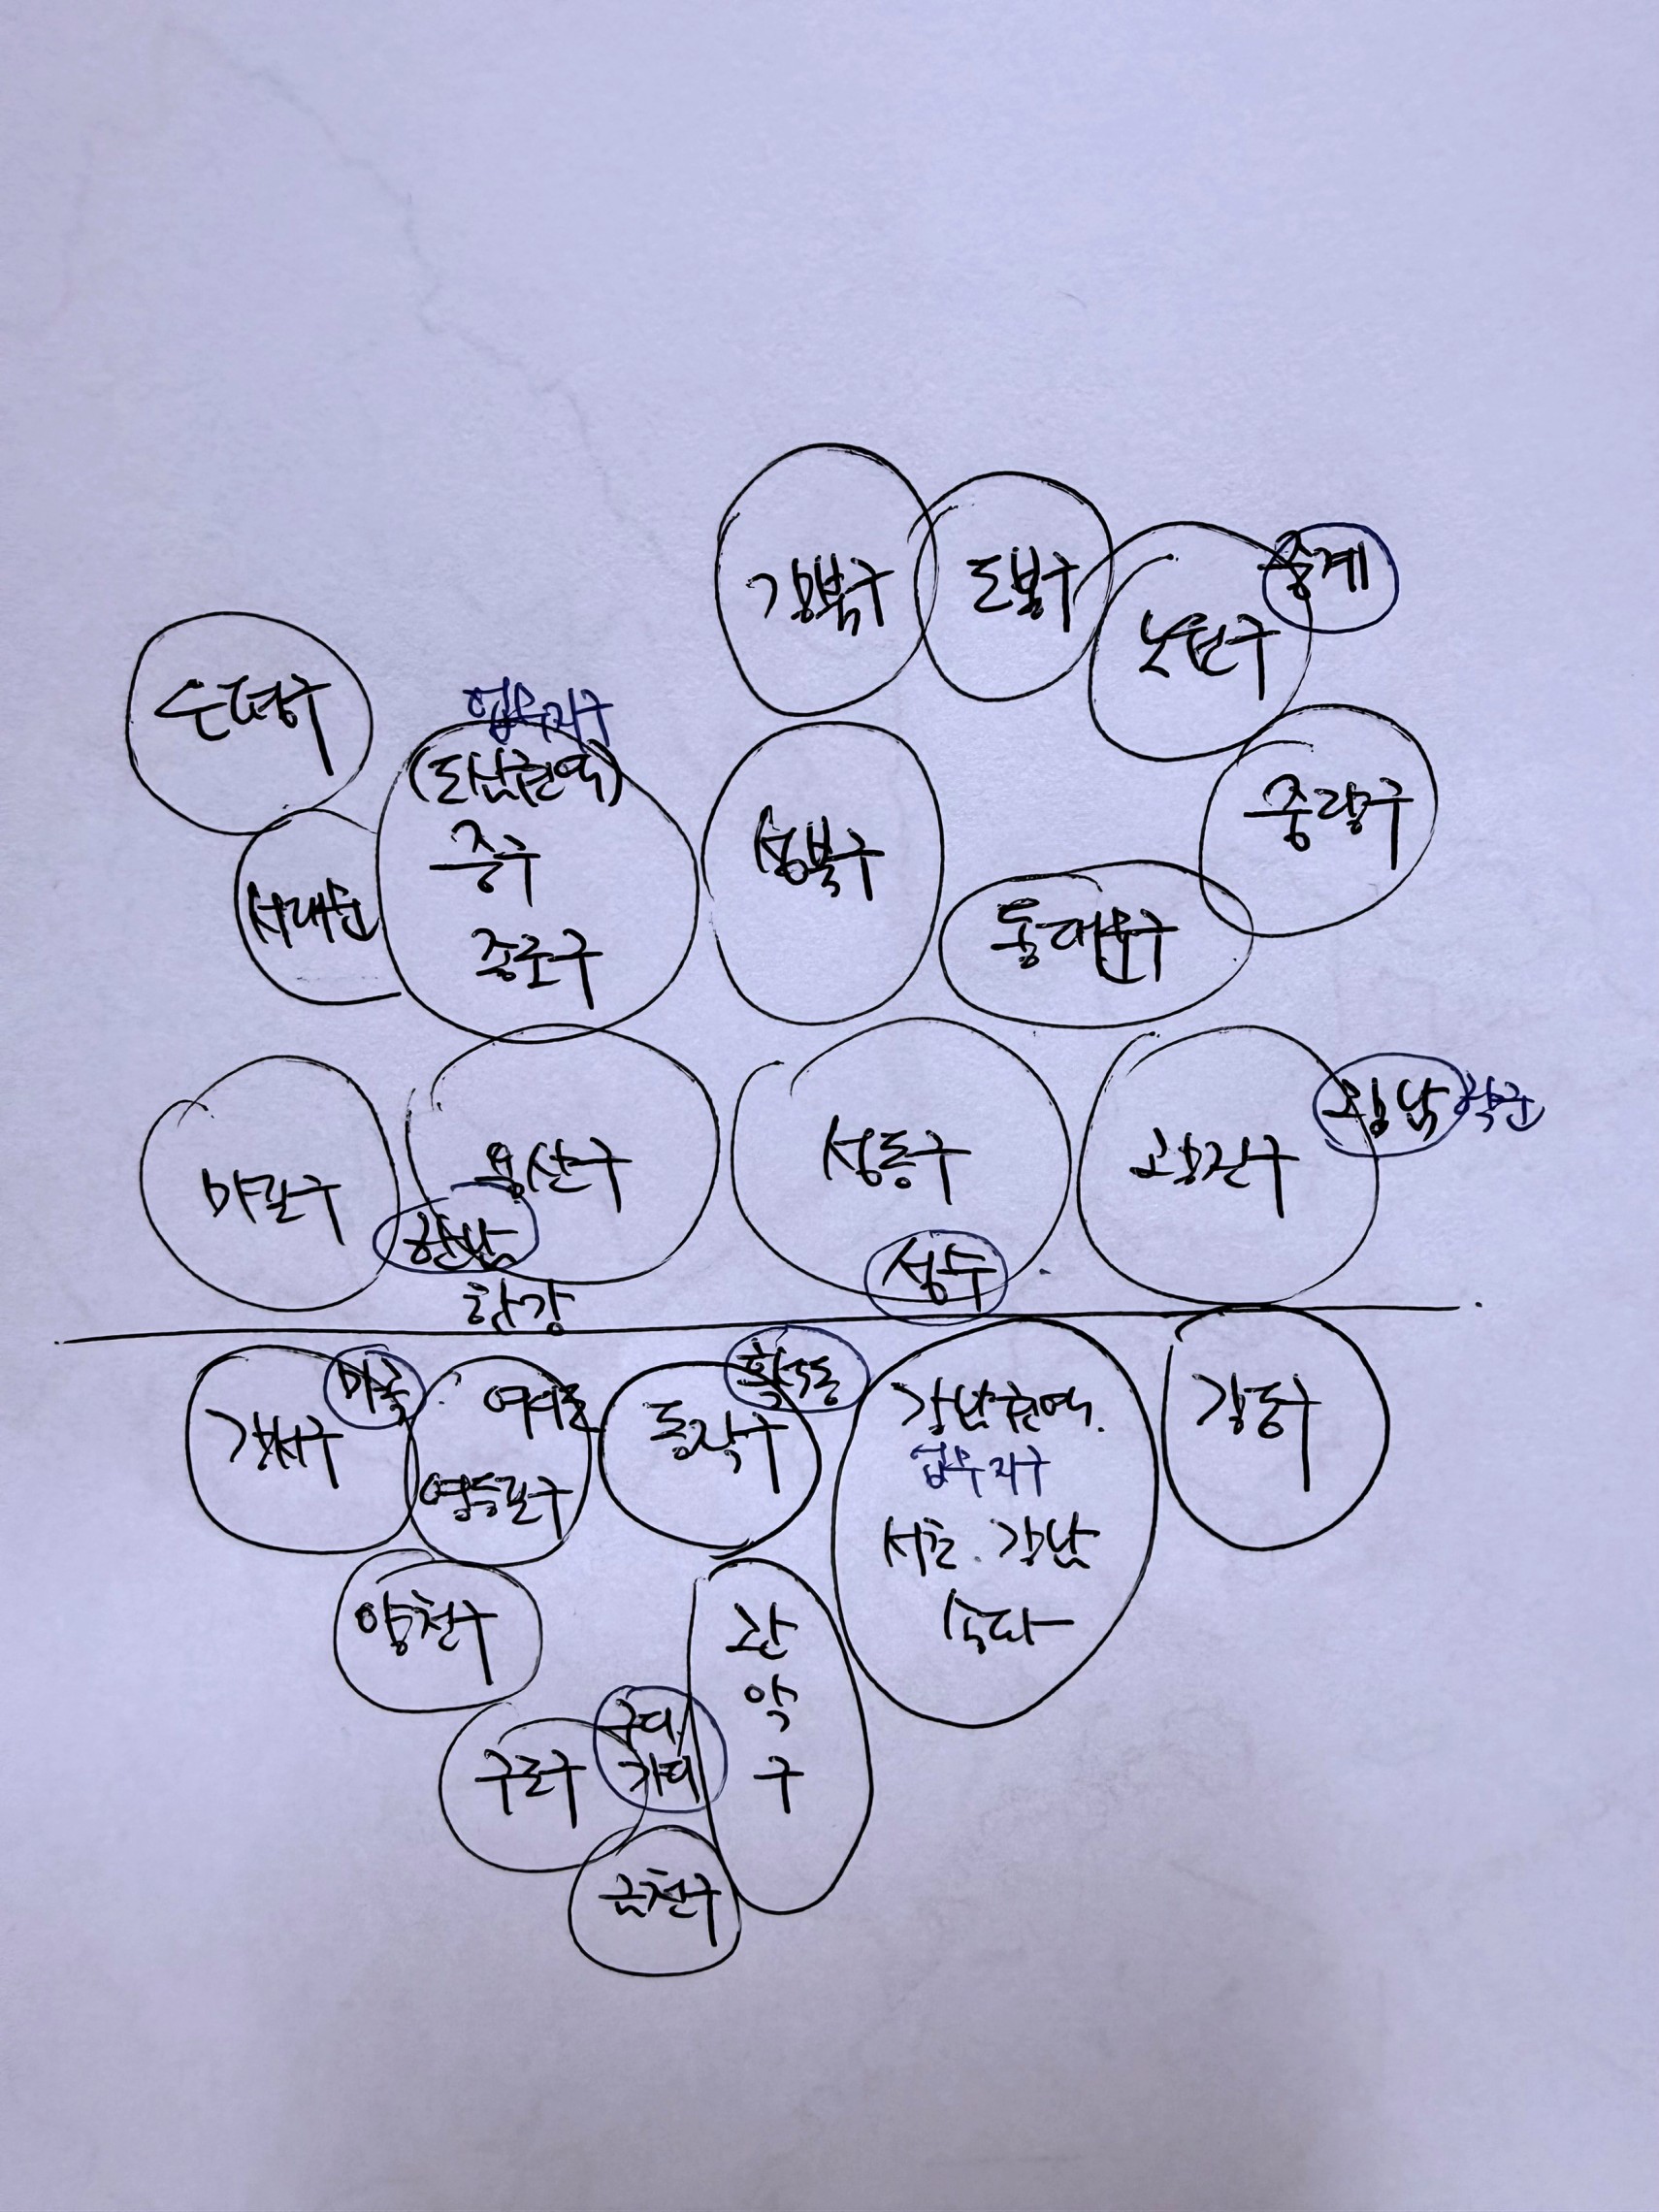 강북구
도봉구
노원구
중계
은평구
업무지구
(도심권역)
중구
종로구
서대문
성북구
중랑구
동대문구
마포구
용산구
한남
성동구
성수
광진구
광남학군
한강
강서구
마곡
여의도
영등포구
동작구
흑석동
강남권역.
업무지구
서초. 강남
송파
강동구
양천구
관
악
구
구로구
구디/
가디
금천구